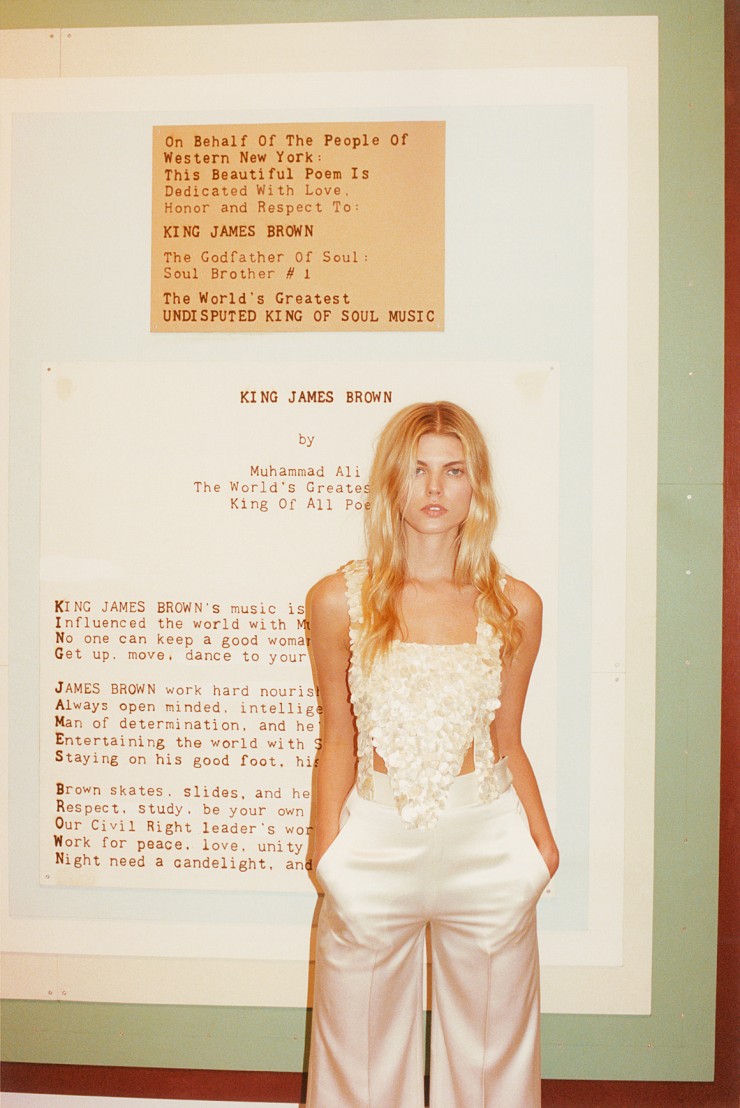 On Behalf Of The People Of
Western New York:
This Beautiful Poem Is
Dedicated With Love,
Honor and Respect To:
KING JAMES BROWN
The Godfather Of Soul:
Soul Brother # 1
The World's Greatest
UNDISPUTED KING OF SOUL MUSIC
KING JAMES BROWN
by
Muhammad Ali
The World's Greates
King Of All Poe
KING JAMES BROWN's music is
Influenced the world with
No one can keep a good woma
Get up, move, dance to your
JAMES BROWN work hard nouris
Always open minded, intellige
Man of determination, and he
Entertaining the world with S
Staying on his good foot, his
Brown skates, slides, and he
Respect, study, be your own
Our Civil Right leader's wor
Work for peace, love, unity
Night need a candelight, and